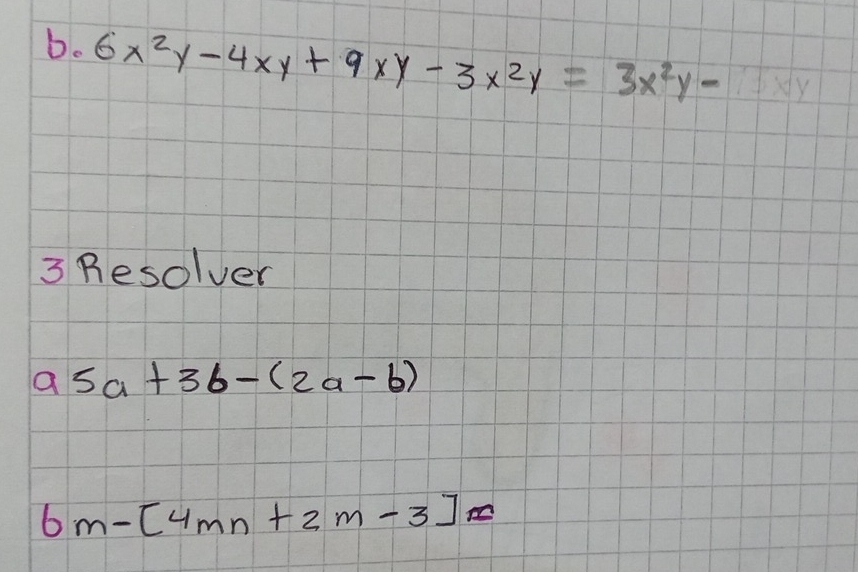 b. 6x²y - 4xy + 9xy - 3x²y = 3x²y -
3 Resolver
a 5a + 3b - (2a - b)
b m - [4mn + 2m - 3] =